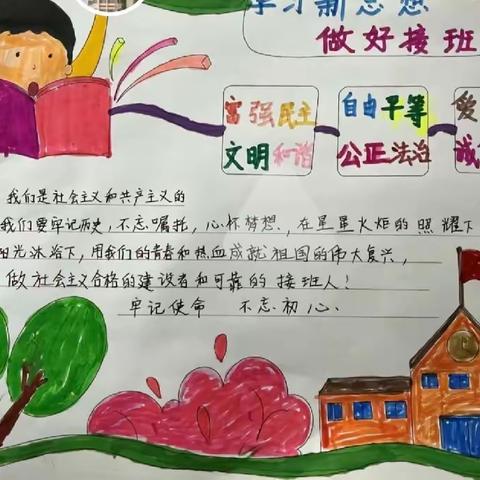 学习新思想
做好接班
富强民主 自由平等 爱
文明和谐 公正法治 诚
我们是社会主义和共产主义的
我们要牢记历史，不忘嘱托，心怀梦想，在星星火炬的照耀下
阳光沐浴下，用我们的青春和热血成就祖国的伟大复兴，
做社会主义合格的建设者和可靠的接班人！
牢记使命 不忘初心.